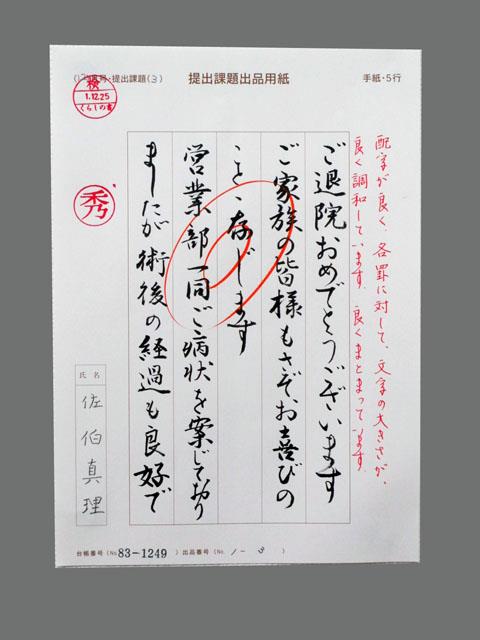 提出課題(3)
提出課題出品用紙
手紙・5行
検
1.12.25
くらしの書
秀
配字が良く、各罫に対して、文字の大きさが、
良く調和しています。良くまとまっています。
ご退院おめでとうございます
ご家族の皆様もさぞお喜びの
ことゝ存じます
営業部一同ご病状を案じており
ましたが術後の経過も良好で
氏名
佐伯真理
台帳番号(No.83-1249)出品番号(No. 1-3)